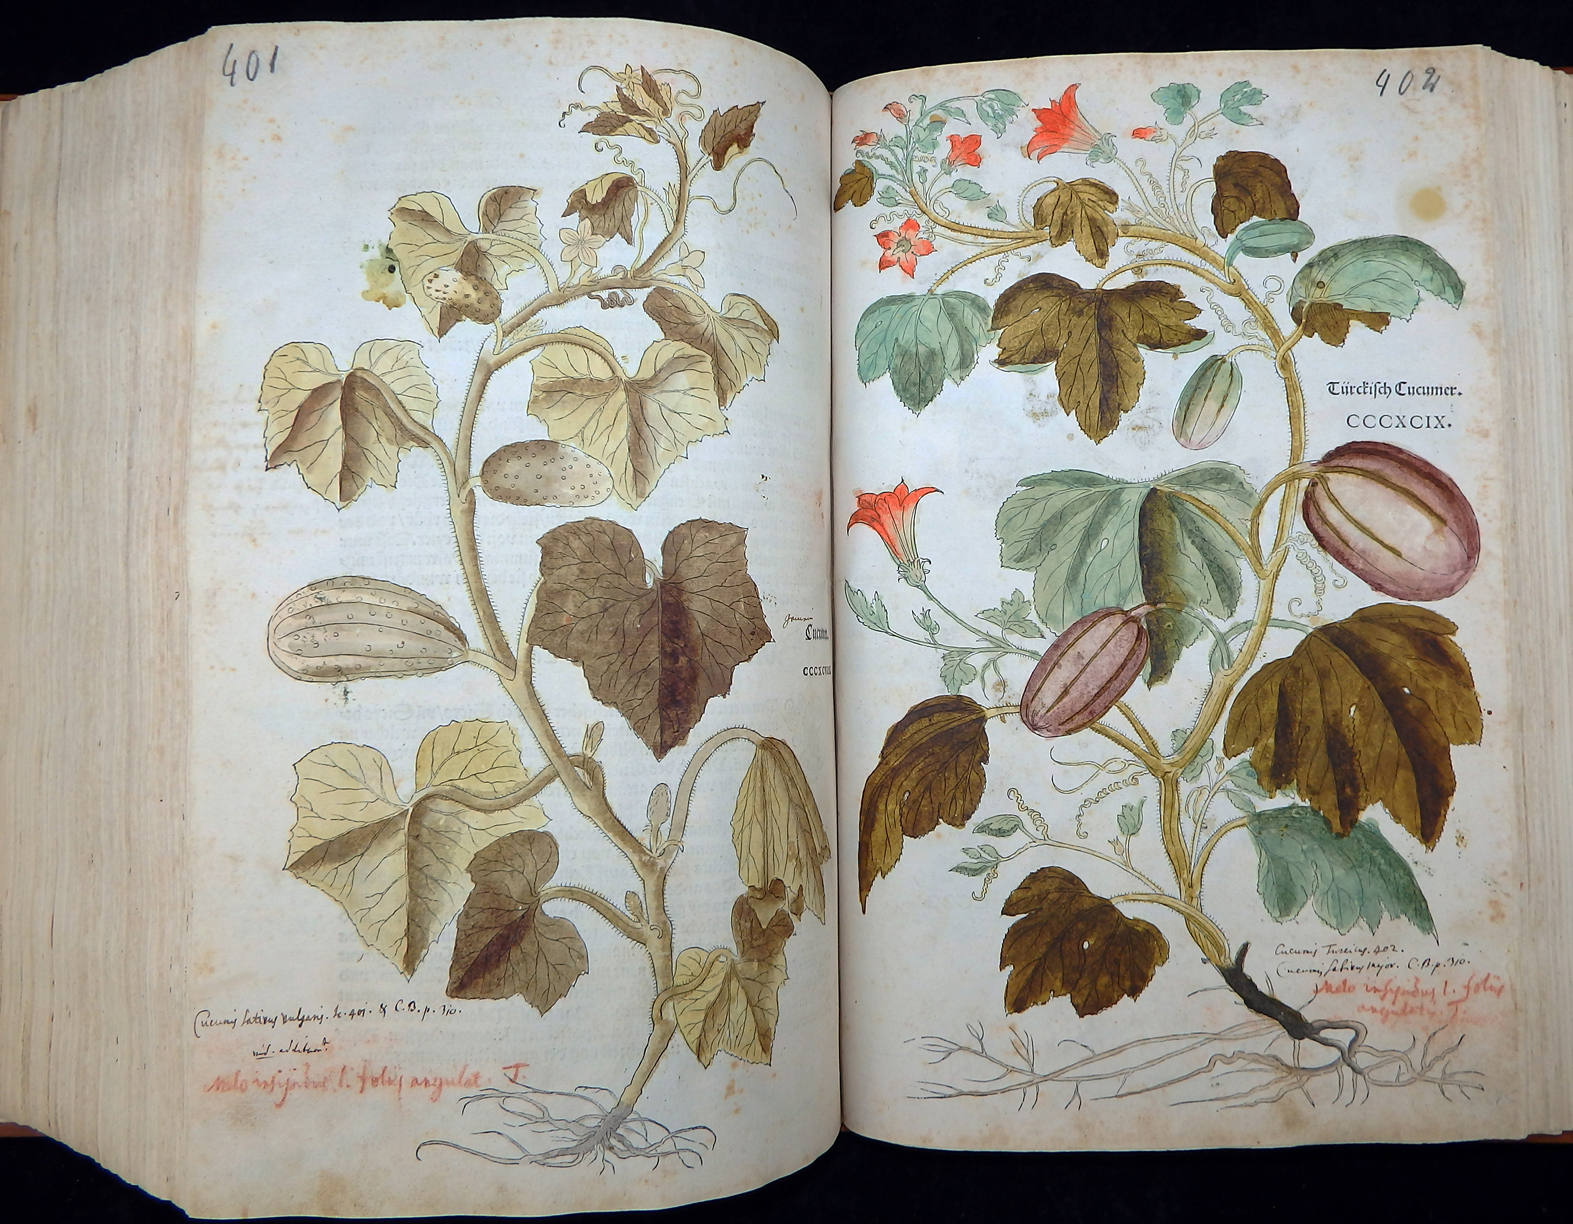 401
Cucumer.
Cucumis sativus vulgaris. Ic. 401. & C.B. p. 310.
Melo l. foliis angulat. T
402
Türckisch Cucumer.
CCCXCIX.
Cucumis Turcicus. 402.
Cucumis sativus major. C.B. p. 310.
Melo l. foliis
angulatis T.